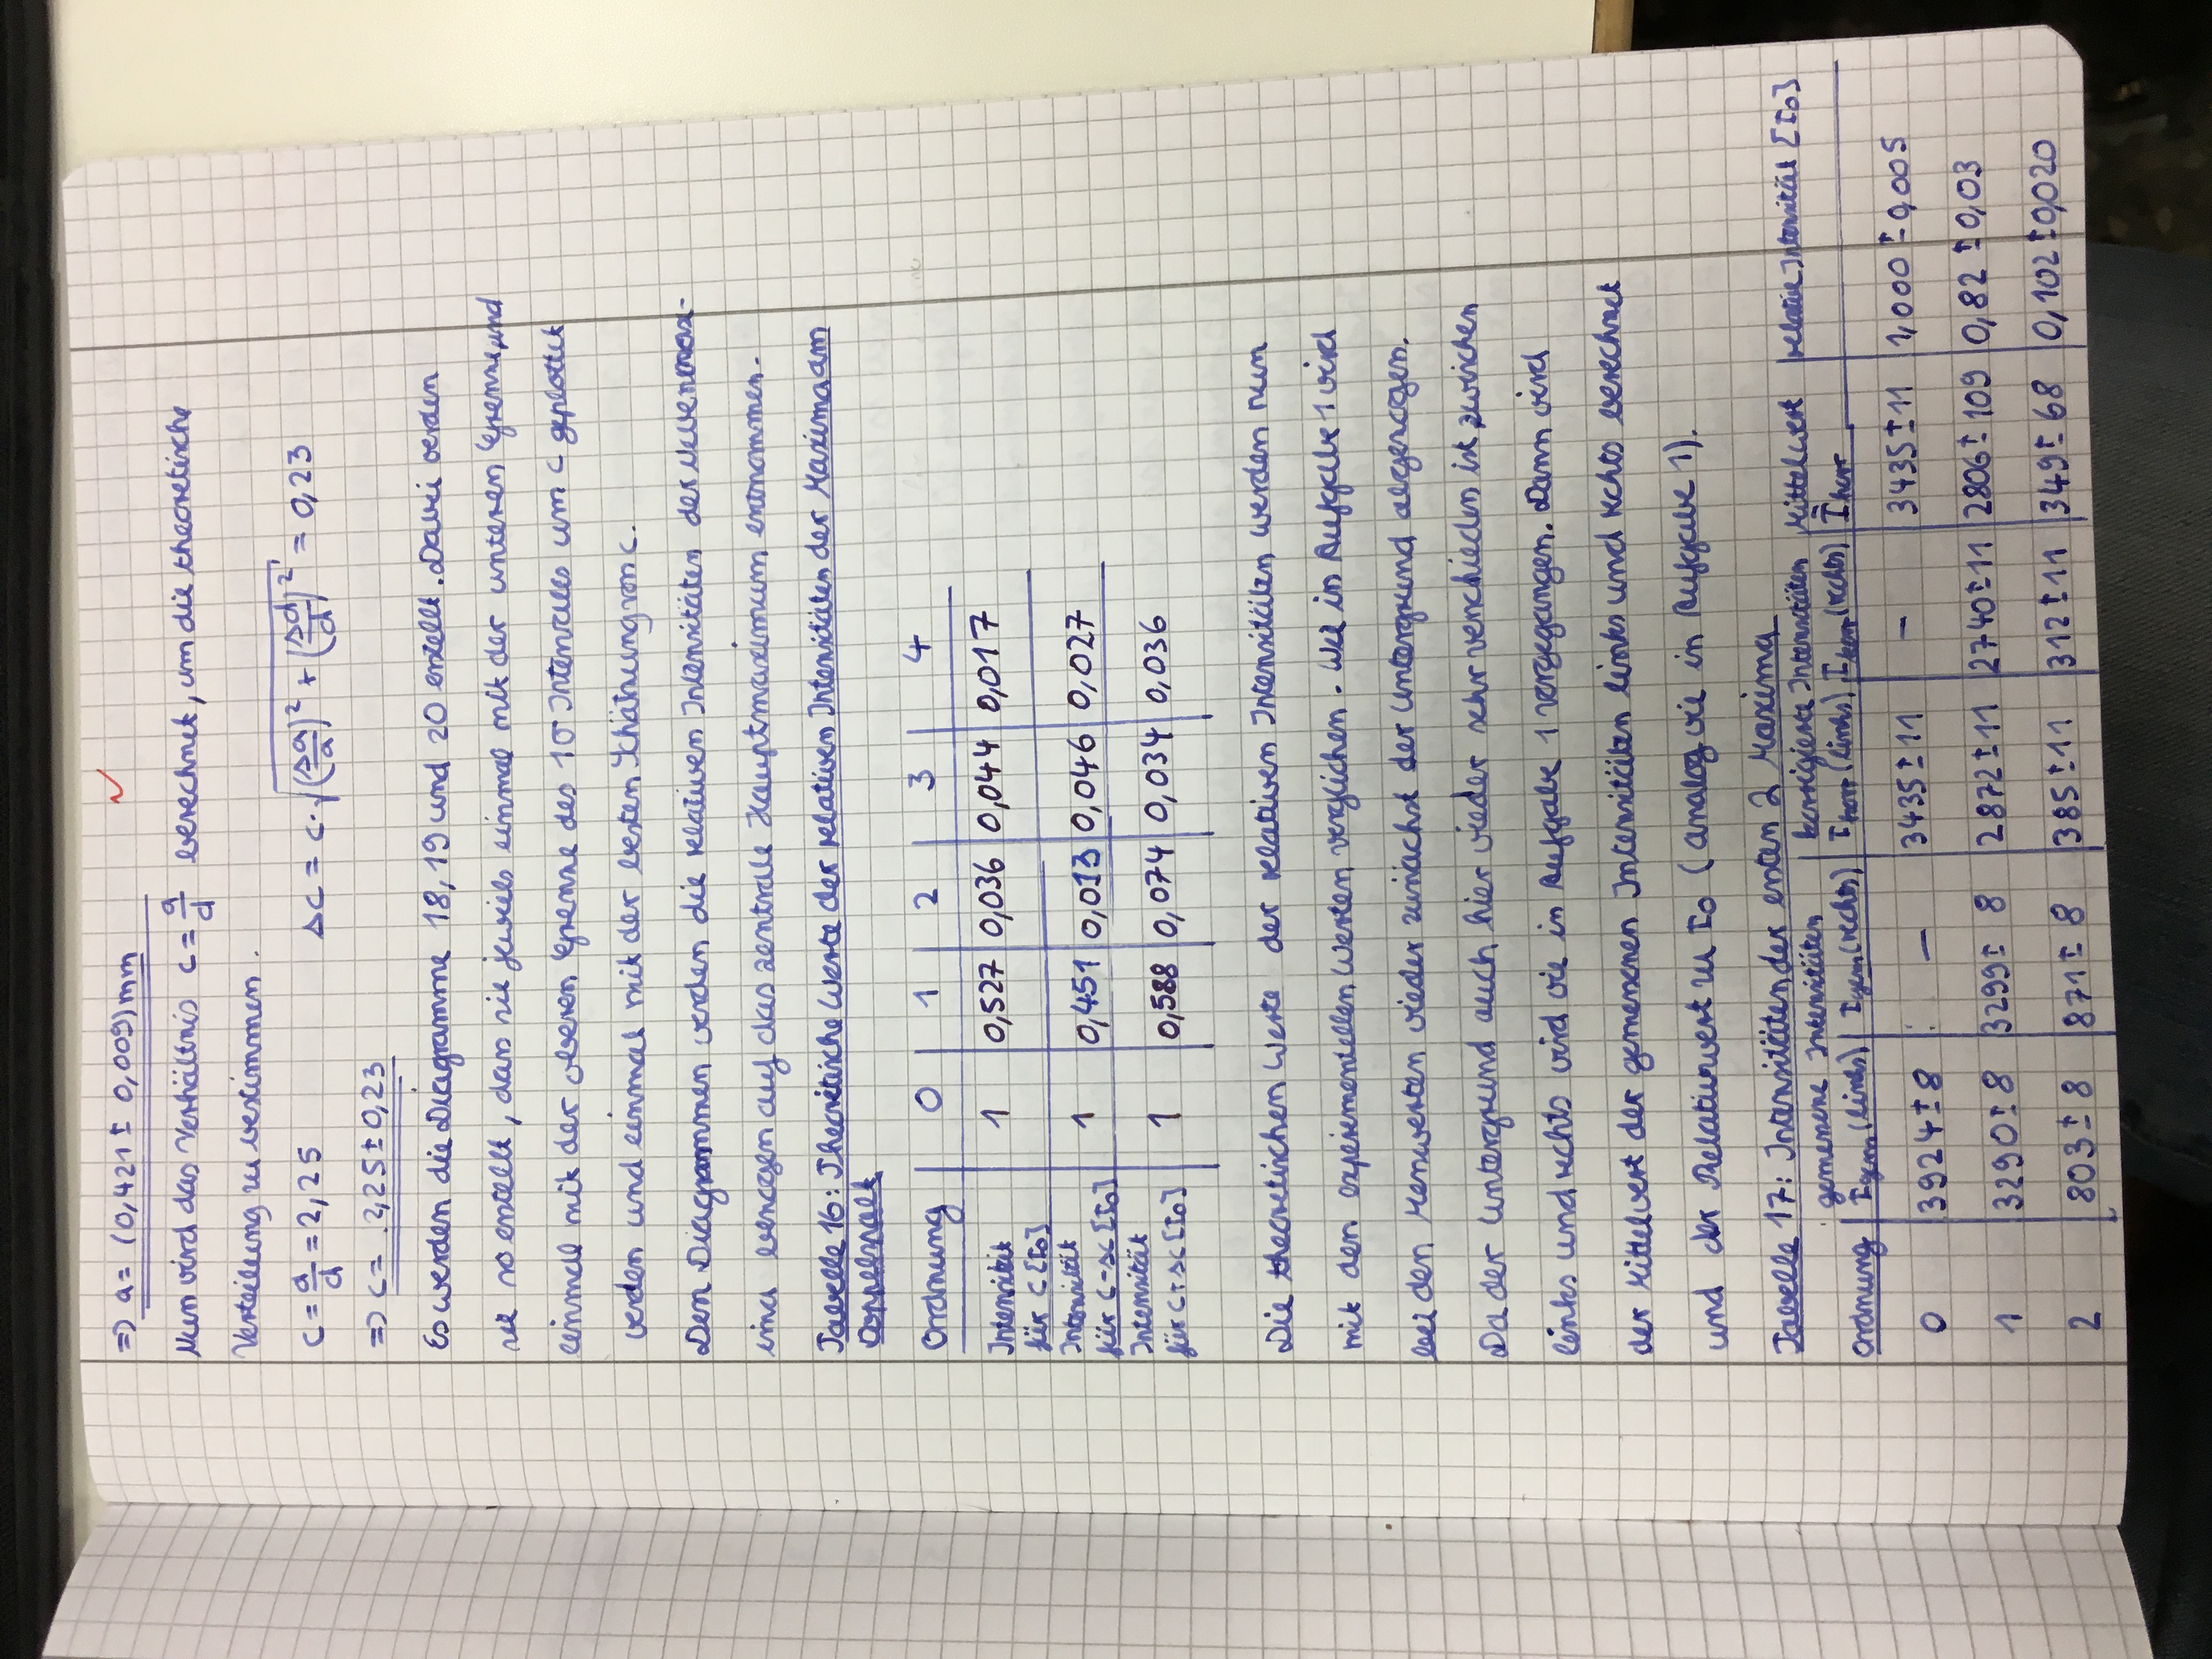 => a = (0,421 ± 0,009) mm
Nun wird das Verhältnis c = a/d berechnet, um die theoretische
Verteilung zu bestimmen.
c = a/d = 2,25 Δc = c·√((Δa/a)² + (Δd/d)²) = 0,23
=> c = 2,25 ± 0,23
Es werden die Diagramme 18, 19 und 20 erstellt. Dabei werden
sie so erstellt, dass sie jeweils einmal mit der unteren Grenze und
einmal mit der oberen Grenze des 1σ Intervalls um c geplottet
werden und einmal mit der besten Schätzung von c.
Den Diagrammen werden die relativen Intensitäten der Nebenmax-
ima bezogen auf das zentrale Hauptmaximum entnommen.
Tabelle 16: Theoretische Werte der relativen Intensitäten der Maxima am
Doppelspalt
Ordnung 0 1 2 3 4
Intensität
für c [I₀] 1 0,527 0,036 0,044 0,017
Intensität
für c-Δc [I₀] 1 0,451 0,013 0,046 0,027
Intensität
für c+Δc [I₀] 1 0,588 0,074 0,034 0,036
Die theoretischen Werte der relativen Intensitäten werden nun
mit den experimentellen Werten verglichen. Wie in Aufgabe 1 wird
bei den Messwerten wieder zunächst der Untergrund abgezogen.
Da der Untergrund auch hier wieder sehr verschieden ist zwischen
links und rechts wird wie in Aufgabe 1 vorgegangen. Dann wird
der Mittelwert der gemessenen Intensitäten links und rechts berechnet
und der Relativwert zu I₀ (analog wie in Aufgabe 1).
Tabelle 17: Intensitäten der ersten 2 Maxima
gemessene Intensitäten korrigierte Intensitäten Mittelwert relative Intensität [I₀]
Ordnung I_gem (links) I_gem (rechts) I_korr (links) I_korr (rechts) Ī_korr
0 3924 ± 8 — 3435 ± 11 — 3435 ± 11 1,000 ± 0,005
1 3290 ± 8 3299 ± 8 2872 ± 11 2740 ± 11 2806 ± 109 0,82 ± 0,03
2 803 ± 8 871 ± 8 385 ± 11 312 ± 11 349 ± 68 0,102 ± 0,020